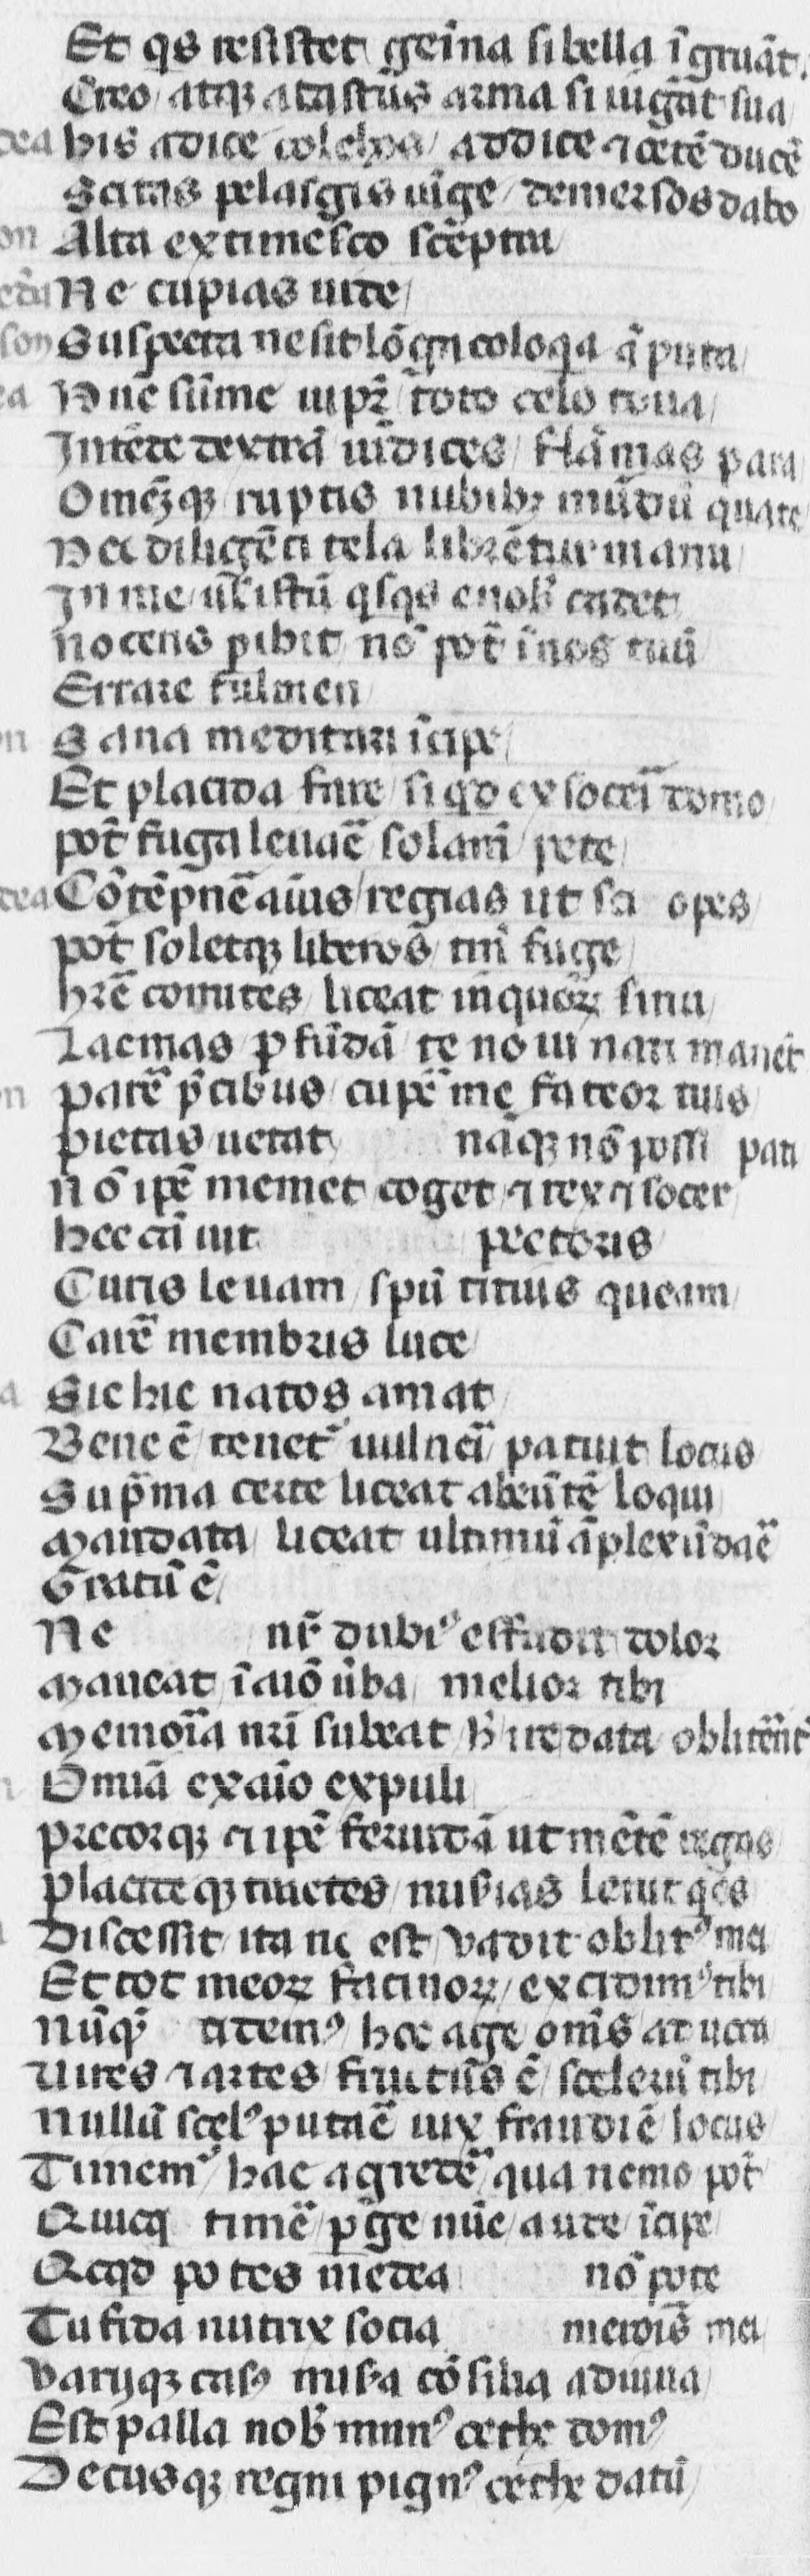 Et qs resistet geīna si bella īgruāt.
Creo atqꝫ acastus arma si iūgāt sua
dea his adice colchos addice ⁊ oetē ducē
Scitas pelasgis iūge demersos dabo
on Alta extimesco sceptra
Ne cupias uide
son Suspecta ne sit lōga coloqa āputa
ea Nūc sūme iupꝛ toto celo tona
Intēde dextrā uīdices flāmas para
Omēqꝫ ruptis nubibꝫ mūdū quate
Nec diligēti tela librētur manu
In me ul istū qsqs e nob cadet
nocens pibit nō pōt ī nos tuū
Errare fulmen
on Sana meditari īcipe
Et placida fare si qd ex soceri domo
pōt fuga leuaē solamē pete
dea Cōtēpnē aīus regias ut sci opes
pōt soletqꝫ liberos tm̄ fuge
hrē comites liceat in quoꝝ sinu
Lacmas pfūdā te noui nati manēt
on parē pcibus cupē me fateor tuis
pietas uetat nāqꝫ nō possi pati
nō ipē memet coget ⁊ rex ⁊ socer
hec cā uit pectoris
Curis leuam spū citius queam
Carē membris luce
a Sic hic natos amat
Bene ē tenet uulneri patuit locus
Supma certe liceat abeūtē loqui
Mandata liceat ultimū āplexū daē
Gratū ē
Ne nr̄ dubiꝰ effudit dolor
Maneat ī aīo ūba melior tibi
Memoria nr̄i subeat h ire data oblitent
Omīa ex aīo expuli
precorqꝫ ⁊ ipē feruidā ut mētē regas
placiteqꝫ tractes misias lenit qes
Discessit ita ne est vadit oblitꝰ mei
Et tot meoꝝ facinoꝝ excidimꝰ tibi
Nūqꝫ cidemꝰ hoc age om̄s aduoca
Uires ⁊ artes fructus ē sceleꝝ tibi
Nullū scelꝰ putaē uix fraudi ē locus
Timemꝰ hac agredē qua nemo pōt
Quicq timē pge nūc aude īcipe
Qcqd potes medea nō pote
Tu fida nutrix socia meroris mei
Variiqꝫ casꝰ misa cōsilia adiuua
Est palla nob munꝰ ethe domꝰ
Decusqꝫ regni pignꝰ ethe datū